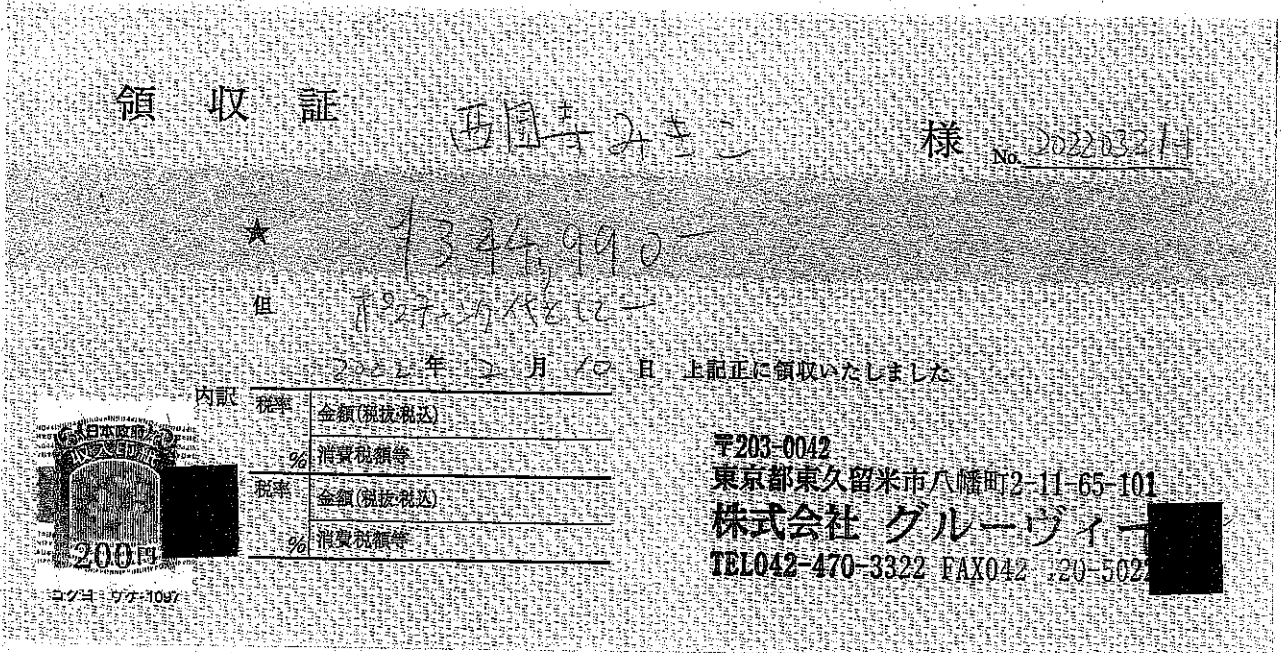 領収証 西園寺みきこ 様 No. 2022032111
★ ¥344,990-
但
2022年 2月 10日 上記正に領収いたしました
内訳
税率 % 金額(税抜・税込)
消費税額等
税率 % 金額(税抜・税込)
消費税額等
日本政府
収入印紙
200円
コクヨ ウケ-1097
〒203-0042
東京都東久留米市八幡町2-11-65-101
株式会社 グルーヴィー
TEL042-470-3322 FAX042 420-5022